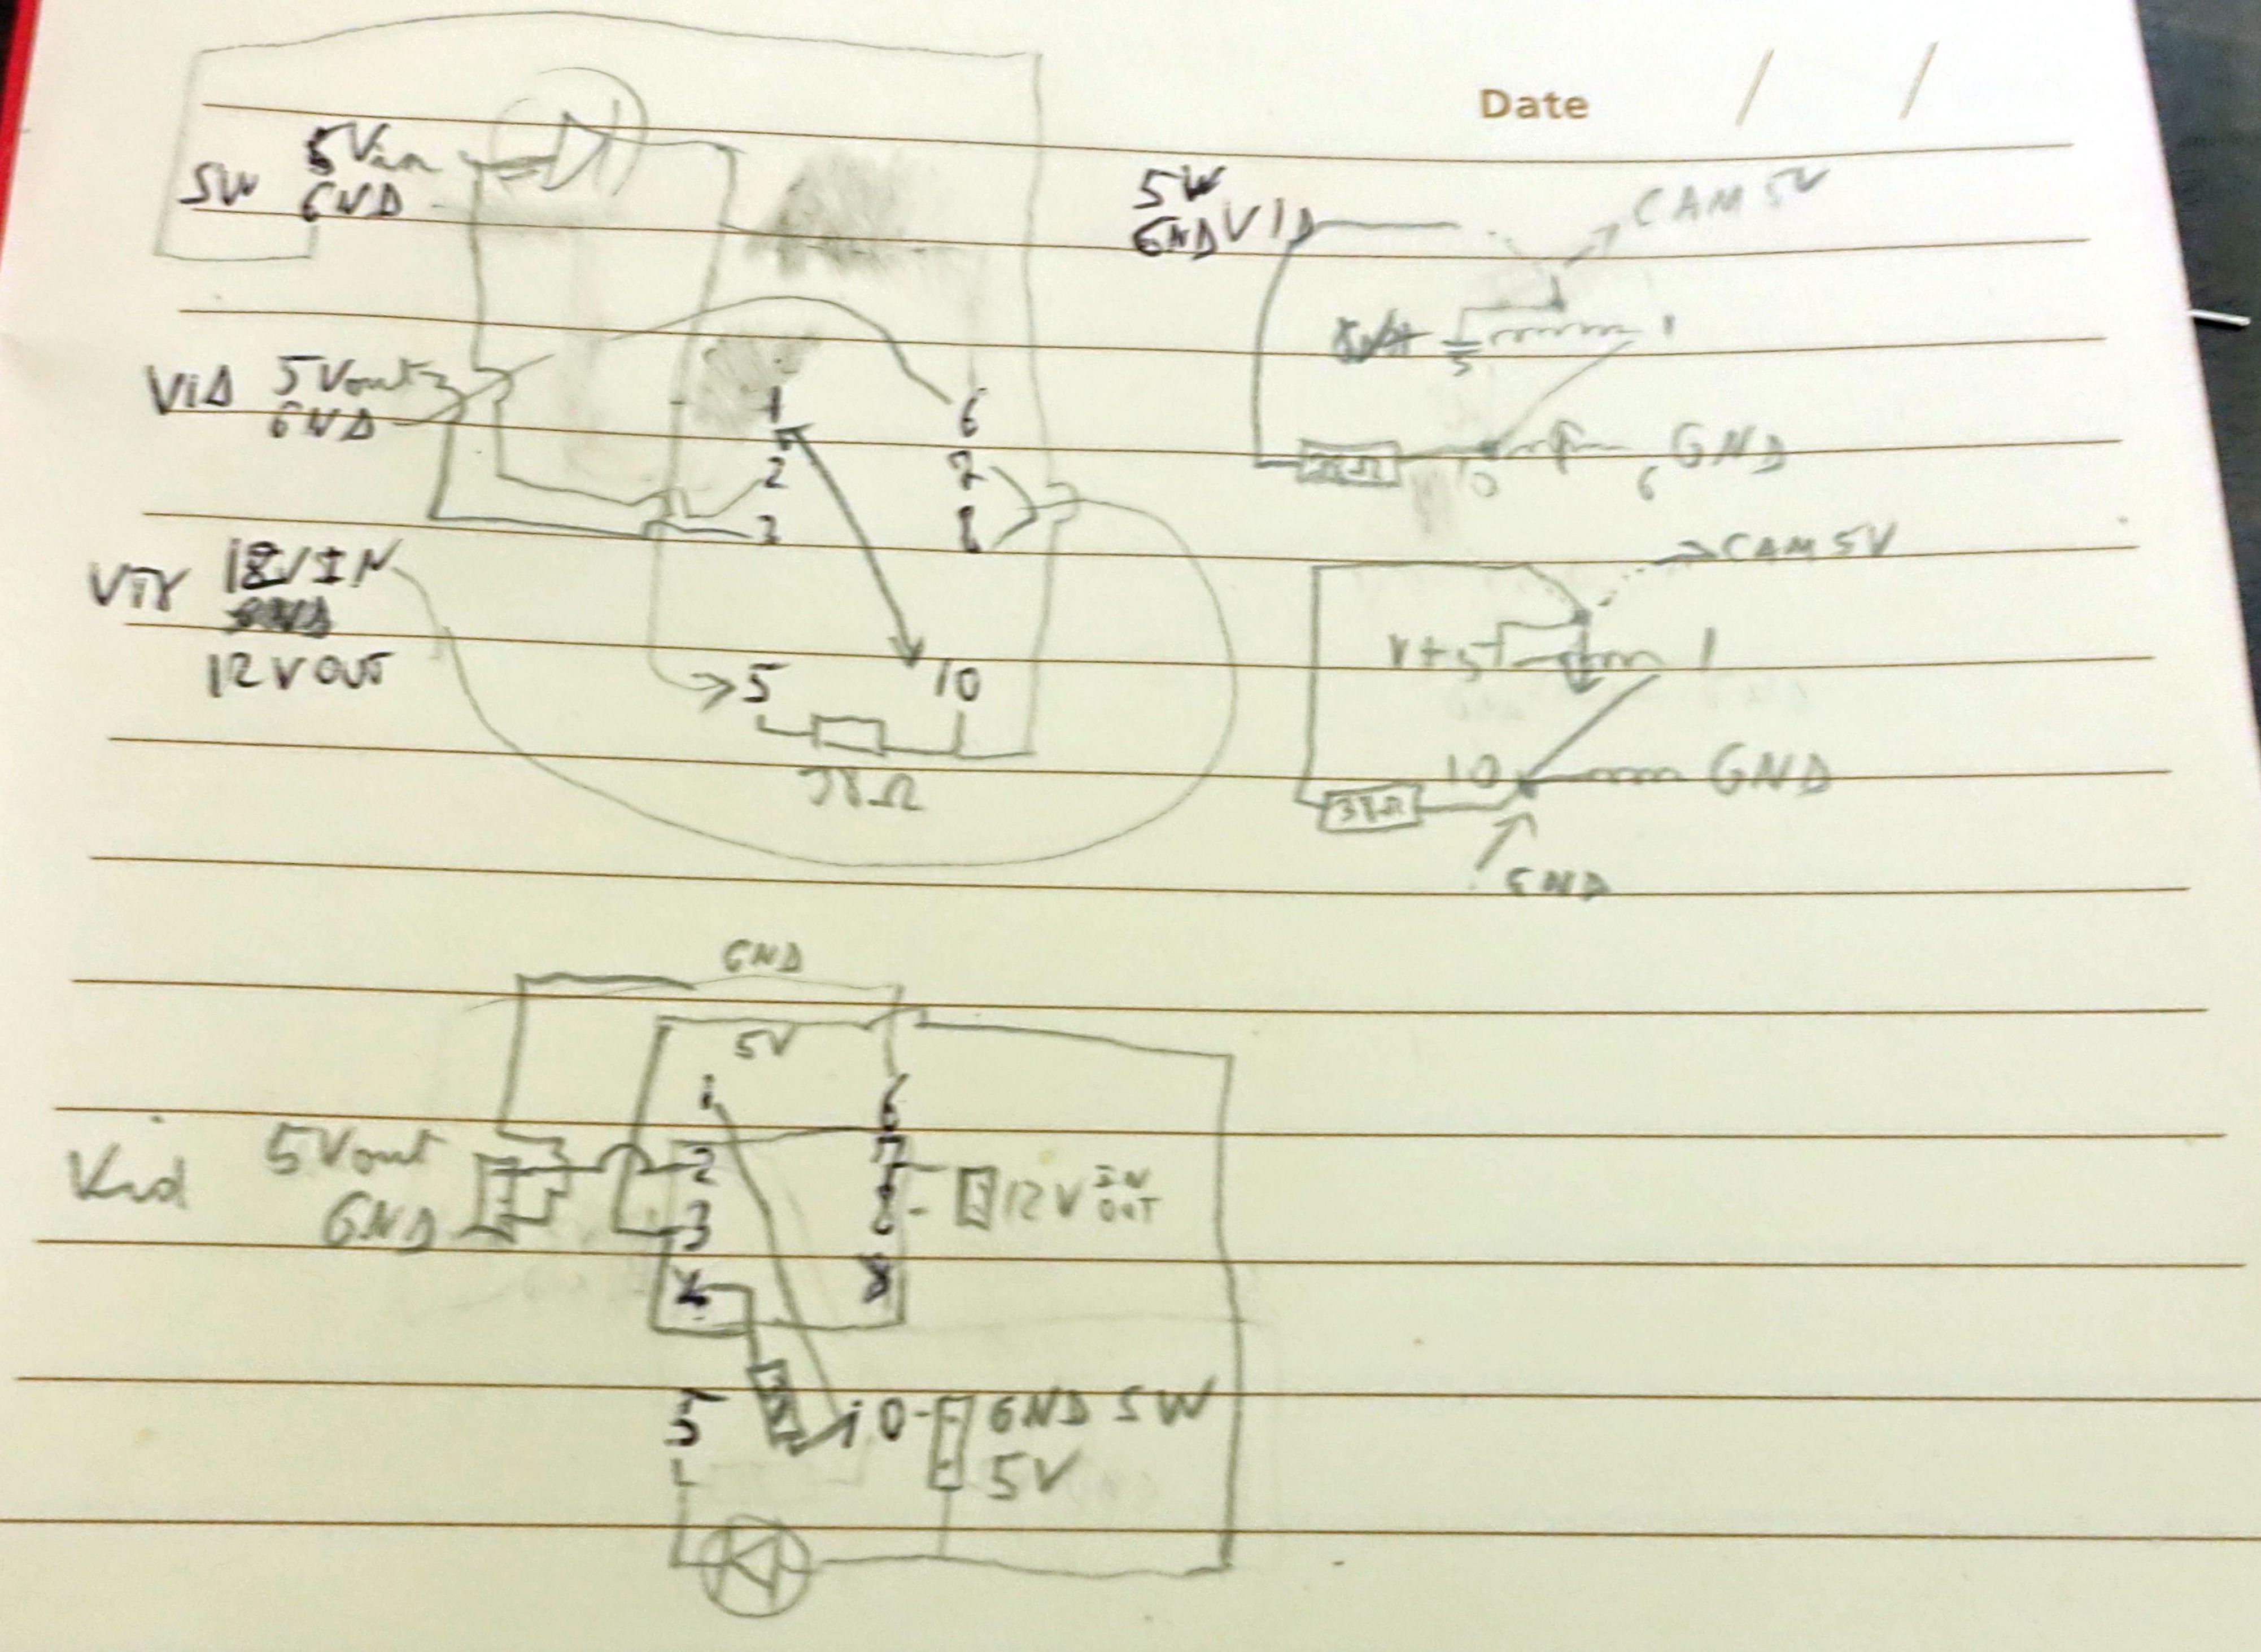 Date / /
SW 5Vin
GND
5W
GND VID
CAM 5V
1
5
10
6
GND
ViD 5Vout
GND
1 6
2 7
3 8
12VIN
12VOUT
5 10
38Ω
CAM 5V
V+5
1
10
GND
38Ω
GND
GND
5V
1 6
2 7
3 8
Vid 5Vout
GND
12V IN
OUT
5 10
GND SW
5V